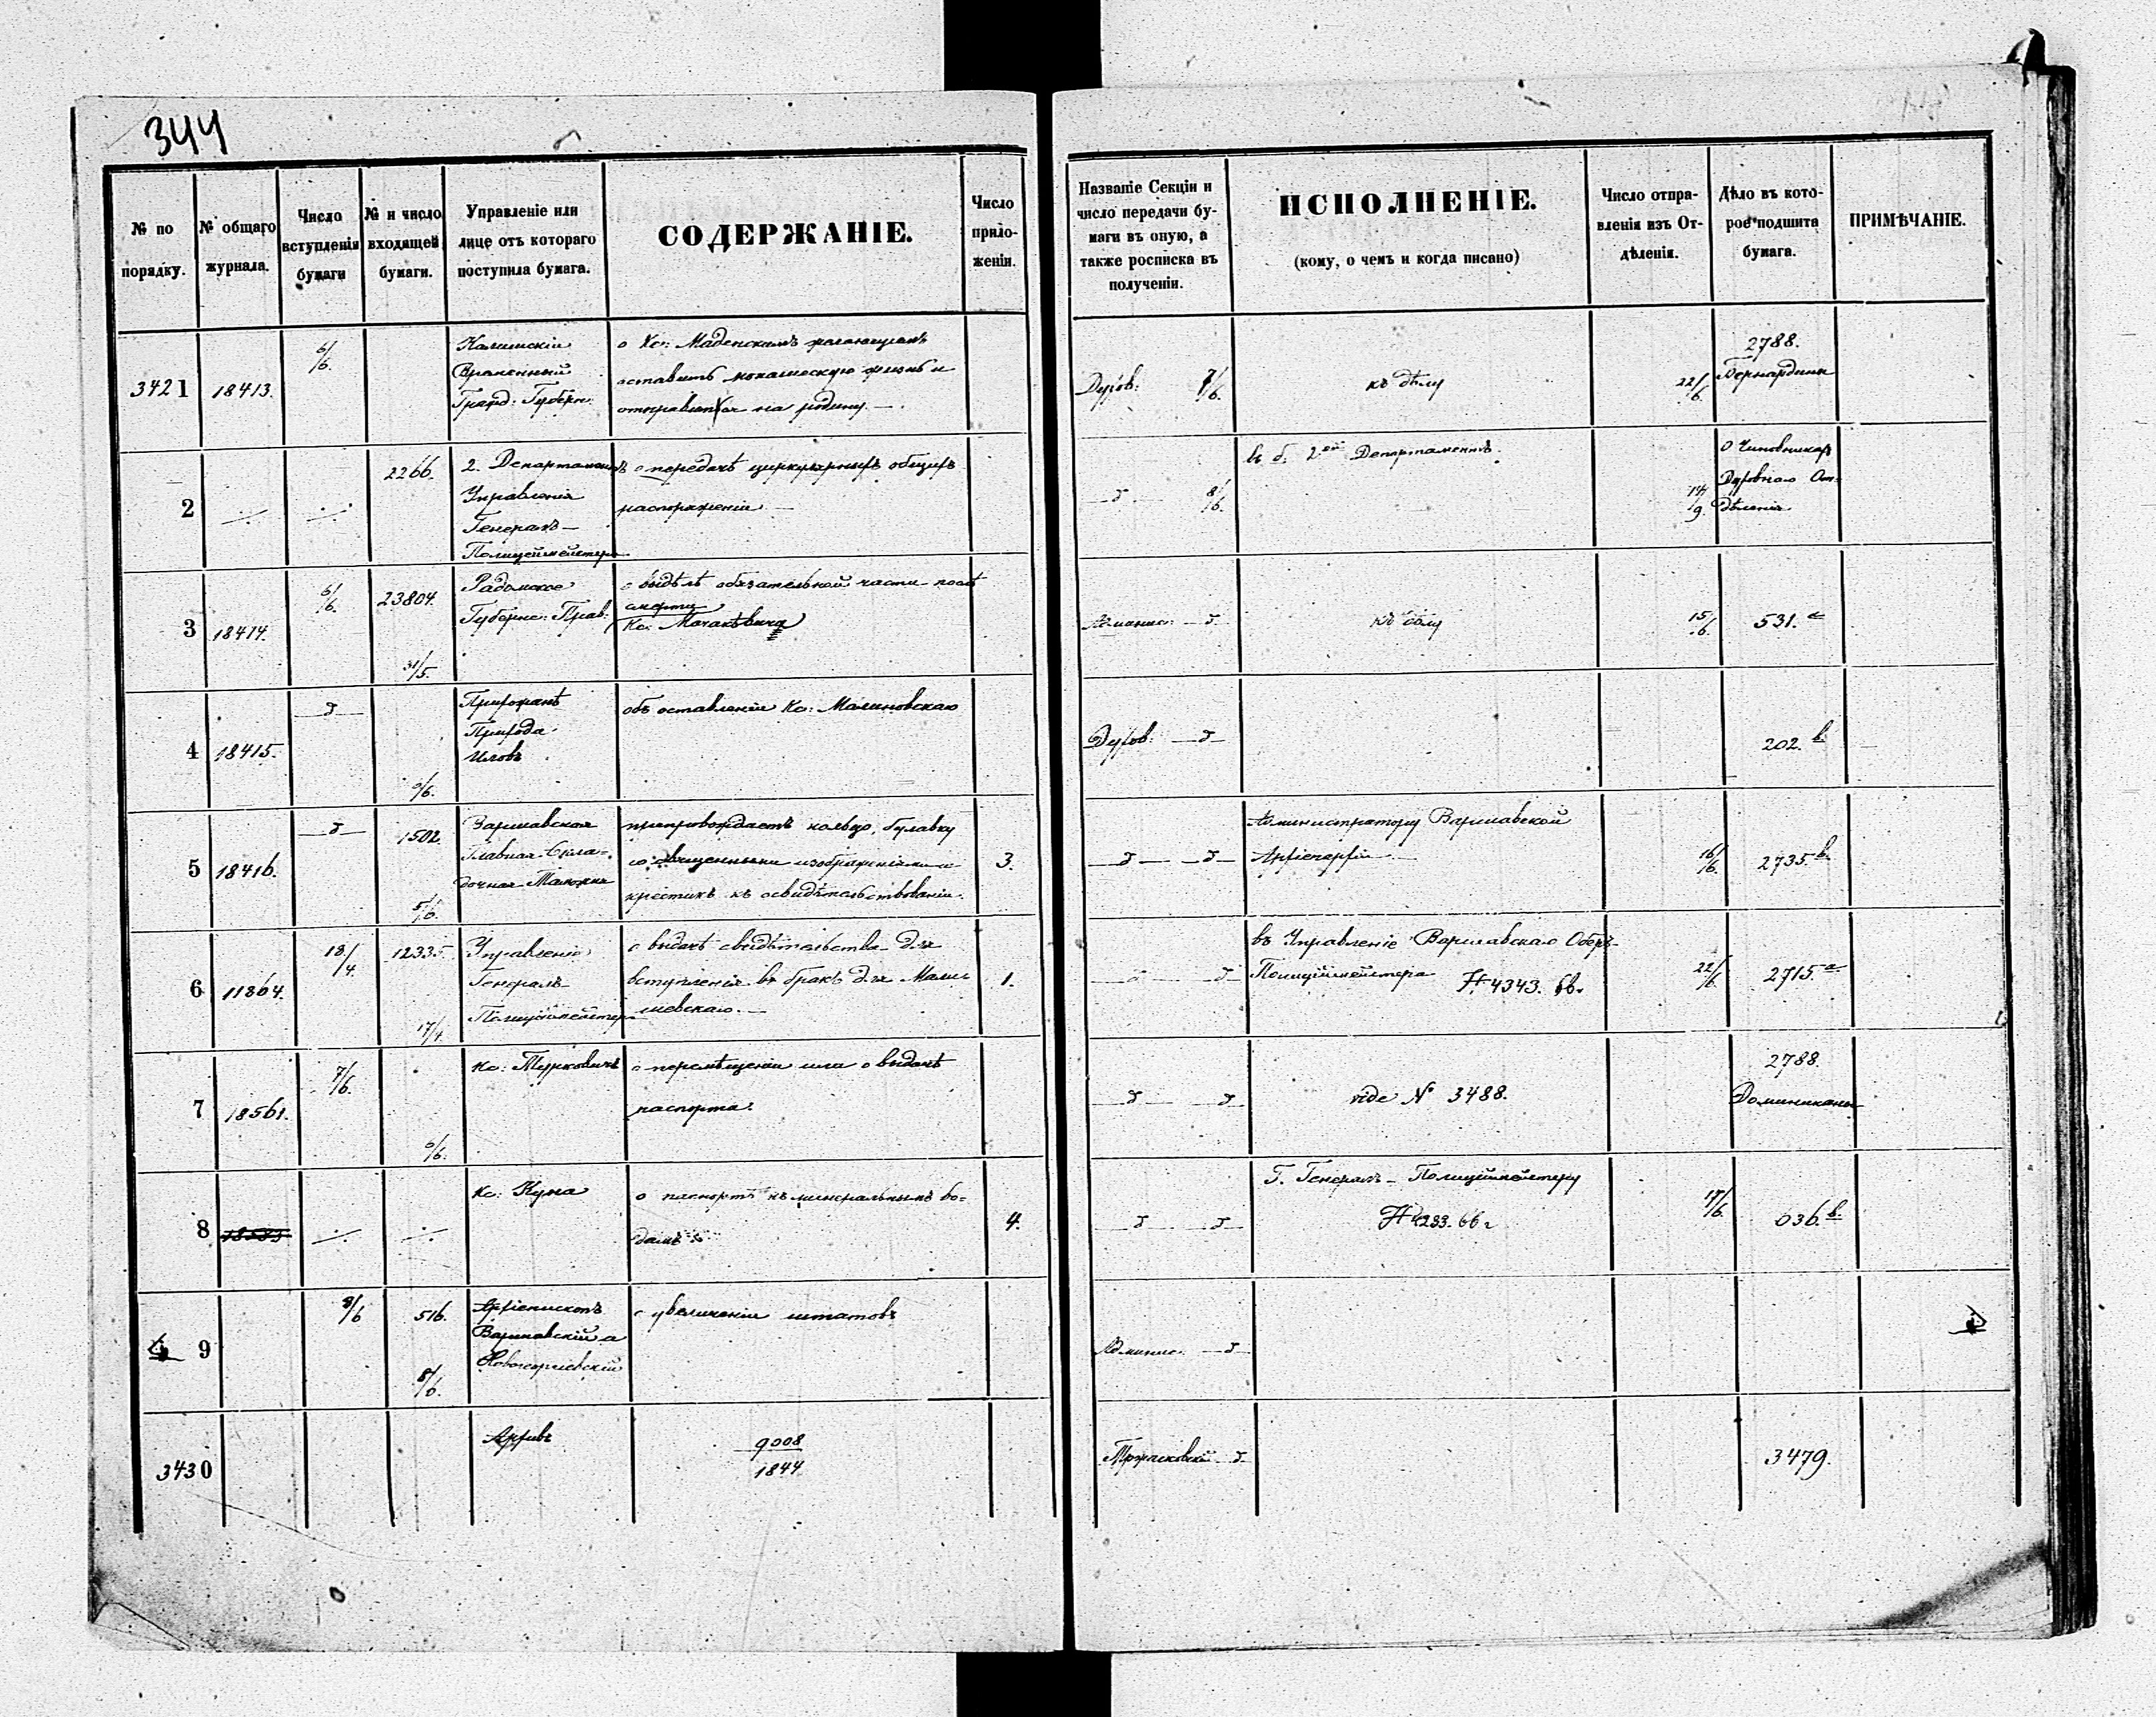 344
№ по порядку.
№ общаго журнала.
Число вступленія бумаги
№ и число входящей бумаги.
Управленіе или лице отъ котораго поступила бумага.
СОДЕРЖАНІЕ.
Число прило-
женій.
Названіе Секціи и
число передачи бу-
маги въ оную, а
также росписка въ
полученіи.
ИСПОЛНЕНІЕ.
(кому, о чемъ и когда писано)
Число отпра-
вленія изъ От-
дѣленія.
Дѣло въ кото-
рое подшита
бумага.
ПРИМѢЧАНІЕ.
3421
18413.
6/6.
Калишскій
Временный
Гражд: Губерн:
о Кс: Маденскимъ желающемъ
оставить монашескую жизнь и
отправиться на родину.
Духов: 7/6.
къ дѣлу
22/6.
2788.
Бернардины
2
2266.
2. Департаментъ
Управленія
Генералъ-
Полицеймейстера
о передачѣ циркулярныхъ общихъ
распоряженій
д 8/6.
въ б. 2ой Департаментъ.
14/9.
О Чиновникахъ
Духовнаго От-
дѣленія
3
18414.
6/6.
23804.
31/5.
Радомское
Губернс: Прав:
о выдѣлѣ обязательной части послѣ
смерти
Кс:
Админис: д
къ дѣлу
15/6.
531. а
4
18415.
д
6/6.
Прихожанѣ
Прихода
Иловъ
объ оставленіи Кс: Малиновскаго
Духов: д
202. в.
5
18416.
д
1502.
5/6.
Варшавская
Главная Скла-
дочная Таможня
препровождаетъ кольцо, булавку
со священными изображеніями и
крестикъ къ освидѣтельствованію.
3.
д д
Администратору Варшавской
Архіепархіи
16/6.
2735 в.
6
11864.
18/4.
12335.
17/4.
Управленіе
Генералъ-
Полицеймейстера
о выдачѣ свидѣтельства для
вступленія въ бракъ для Мали-
шевскаго.
1.
д д
въ Управленіе Варшавскаго Оберъ-
Полицеймейстера № 4343. 66.
22/6.
2715. а
7
18561.
7/6.
6/6.
Кс: Турковичъ
о перемѣщеніи или о выдачѣ
паспорта.
д д
vide № 3488.
2788.
Доминиканы
8
Кс: Куна
о паспортѣ къ минеральнымъ во-
дамъ
4.
д д
Г. Генералъ-Полицеймейстеру
№ 4233. 66 г
17/6.
036. в.
9
8/6
516.
8/6.
Архіепископъ
Варшавскій и
Новогеоргіевскій
о увеличеніи штатовъ
Админис: д
3430
Архивъ
9008
1844.
д
3479.